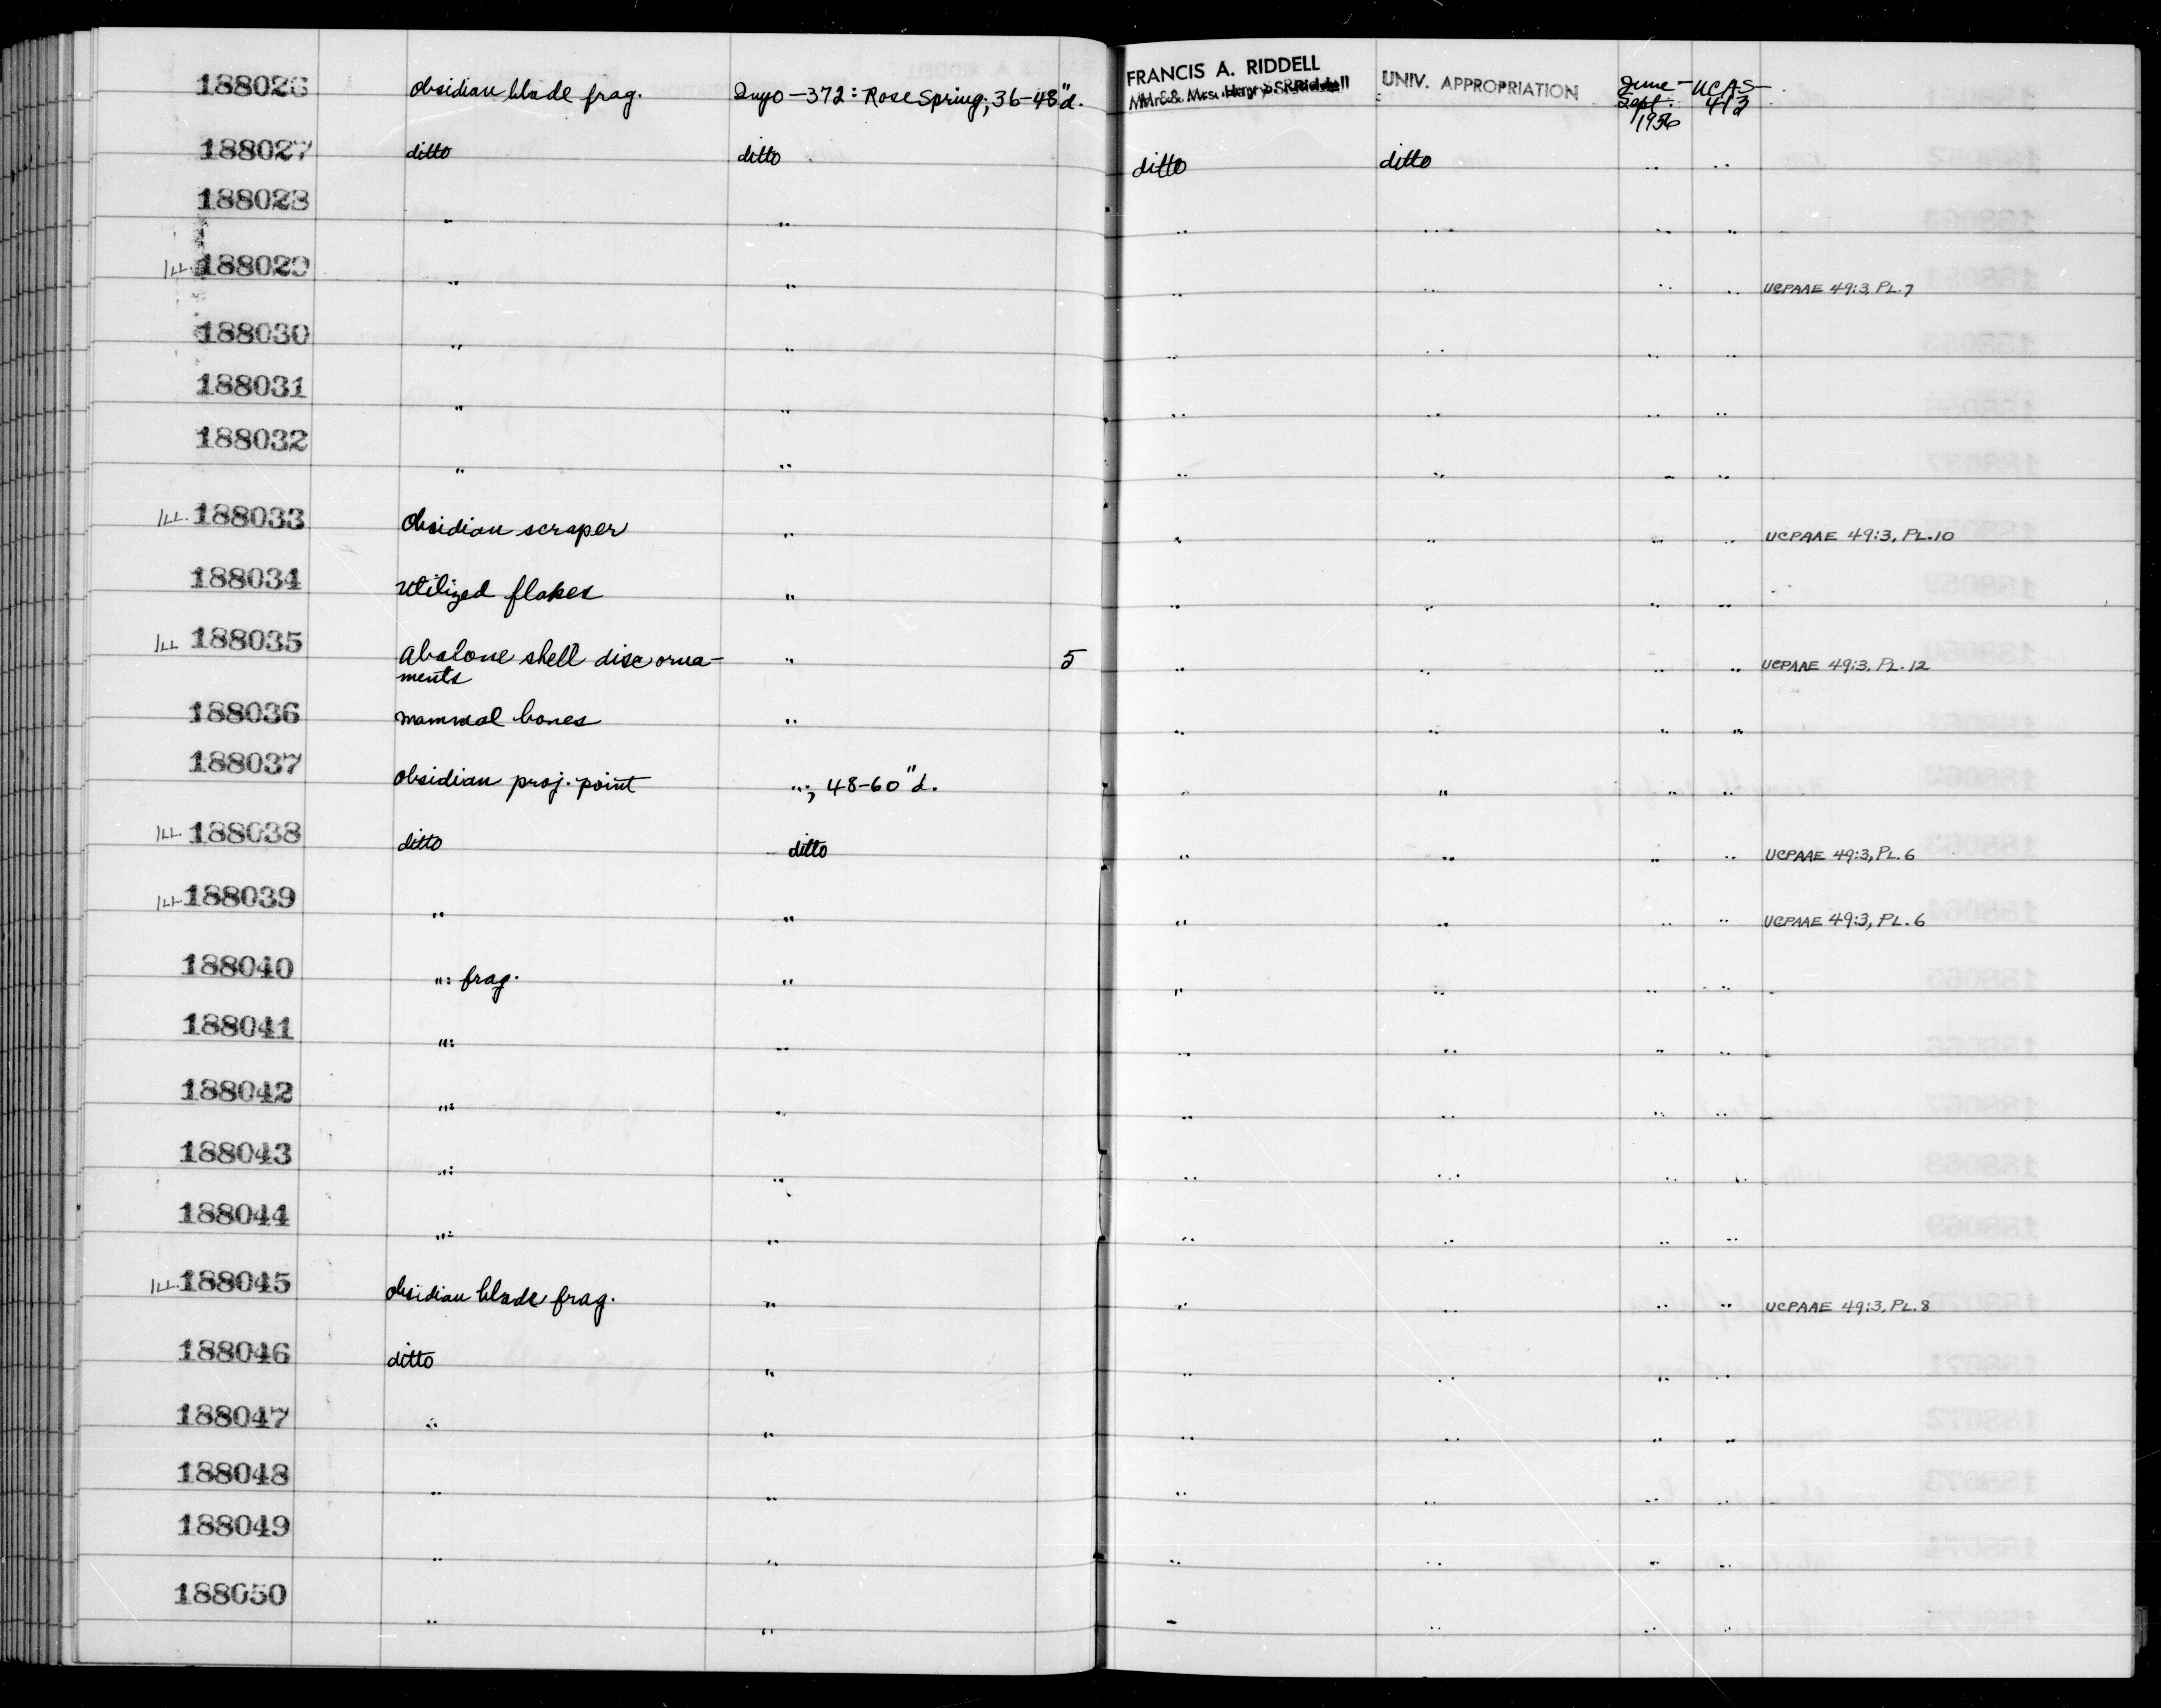 188026 obsidian blade frag. Inyo-372: Rose Spring; 36-48"d. FRANCIS A. RIDDELL UNIV. APPROPRIATION June- UCAS-
Mr. & Mrs. Harry S. Riddell Sept. 413
1956
188027 ditto ditto ditto ditto " "
188028 " " " " " "
ILL. 188029 " " " " " " UCPAAE 49:3, PL.7
188030 " " " " " "
188031 " " " " " "
188032 " " " " " "
ILL. 188033 obsidian scraper " " " " " UCPAAE 49:3, PL.10
188034 utilized flakes " " " " "
ILL 188035 abalone shell disc orna- " 5 " " " " UCPAAE 49:3, PL.12
ments
188036 mammal bones " " " " "
188037 obsidian proj. point "; 48-60"d. " " " "
ILL. 188038 ditto ditto " " " " UCPAAE 49:3, PL.6
ILL. 188039 " " " " " " UCPAAE 49:3, PL.6
188040 ": frag. " " " " "
188041 ": " " " " "
188042 ": " " " " "
188043 ": " " " " "
188044 ": " " " " "
ILL. 188045 obsidian blade frag. " " " " " UCPAAE 49:3, PL.8
188046 ditto " " " " "
188047 " " " " " "
188048 " " " " " "
188049 " " " " " "
188050 " " " " " "